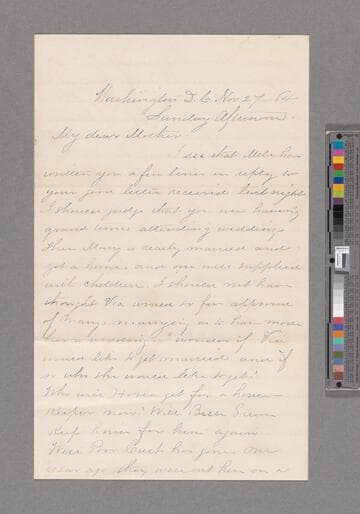 Washington D.C. Nov 27 - 64
Sunday Afternoon
My dear Mother
I see that Mel has
written you a few lines in reply to
your good letter received last night
I should judge that you were having
grand times attending weddings
Then Mary is really married and
got a home and one well supplied
with children. I should not have
thought Via would so far approve
of Mary's as to have made
her a wedding. I wonder if Via
would like to get married and if
so who she would like to get?
Who will get for a house-
keeper now? Will
Keep house for him again
Well Poor has gone. One
year ago they were out here on a